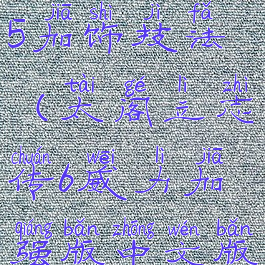 jiā shì jì fǎ
5加饰技法
tài gé lì zhì
(太阁立志
chuán wēi lì jiā
传6威力加
qiáng bǎn zhōng wén bǎn
强版中文版